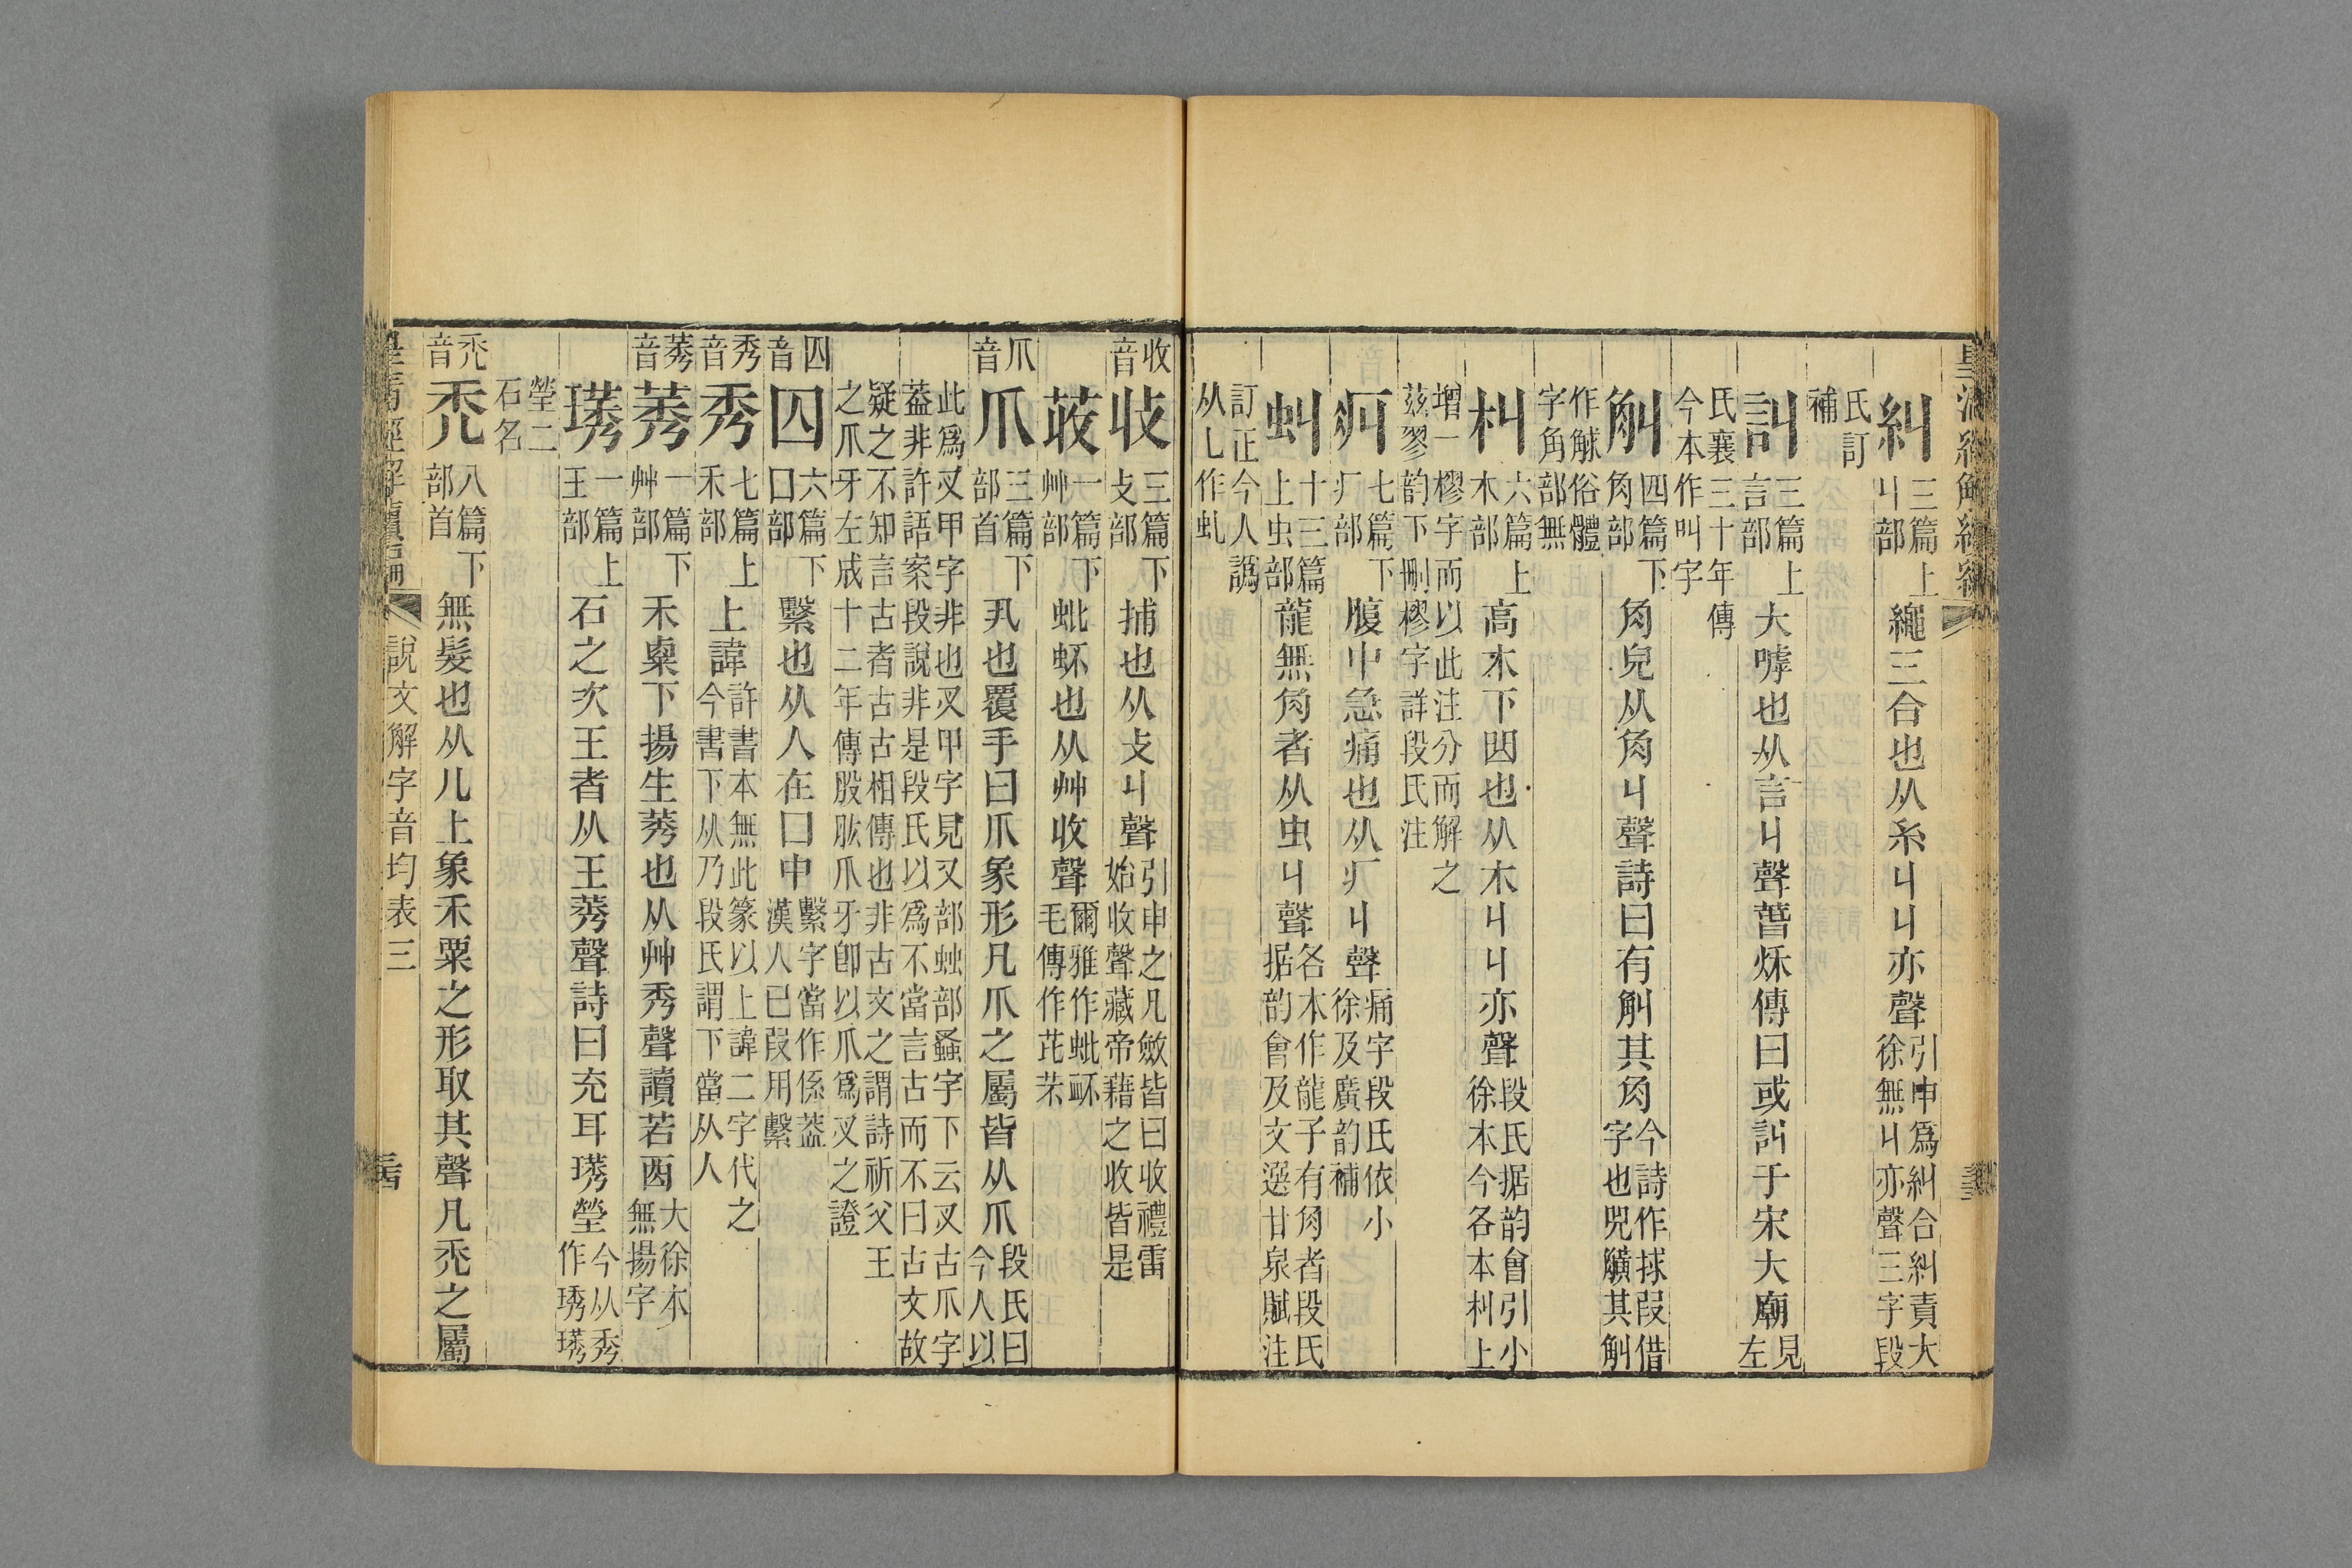 皇清經解續編
糾 三篇上丩部 繩三合也从糸丩丩亦聲 引申爲糾合糾責大徐無丩亦聲三字段
氏訂補
訆 三篇上言部 大嘑也从言丩聲萅秌傳曰或訆于宋大廟 見左
氏襄三十年傳今本作叫字
觓 四篇下角部 角皃从角丩聲詩曰有觓其角 今詩作捄叚借字也兕觵其觓
作觩俗體字角部無
朻 六篇上木部 高木下曲也从木丩丩亦聲 段氏据韵會引小徐本今各本朻上
增一樛字而以此注分而解之茲翏韵下刪樛字詳段氏注
㽱 七篇下疒部 腹中急痛也从疒丩聲 痛字段氏依小徐及廣韵補
虯 十三篇上虫部 龍無角者从虫丩聲 各本作龍子有角者段氏据韵會及文選甘泉賦注
訂正今人譌从乚作虬
收音 收 三篇下攴部 捕也从攴丩聲 引申之凡斂皆曰收禮雷始收聲藏帝藉之收皆是
荍 一篇下艸部 蚍虾也从艸收聲 爾雅作蚍衃毛傳作芘芣
爪音 爪 三篇下部首 丮也覆手曰爪象形凡爪之屬皆从爪 段氏曰今人以
此爲叉甲字非也叉甲字見又部䖵部蝨字下云叉古爪字葢非許語案段說非是段氏以爲不當言古而不曰古文故
疑之不知言古者古古相傳也非古文之謂詩祈父王之爪牙左成十二年傳股肱爪牙卽以爪爲叉之證
囚音 囚 六篇下囗部 繫也从人在囗中 繫字當作係葢漢人已叚用繫
秀音 秀 七篇上禾部 上諱 許書本無此篆以上諱二字代之今書下从乃段氏謂下當从人
莠音 莠 一篇下艸部 禾粟下揚生莠也从艸秀聲讀若酉 大徐本無揚字
璓 一篇上王部 石之次王者从王莠聲詩曰充耳璓瑩 今从秀作琇璓
瑩二石名
禿音 禿 八篇下部首 無髮也从儿上象禾粟之形取其聲凡禿之屬
皇清經解續編 說文解字音均表三